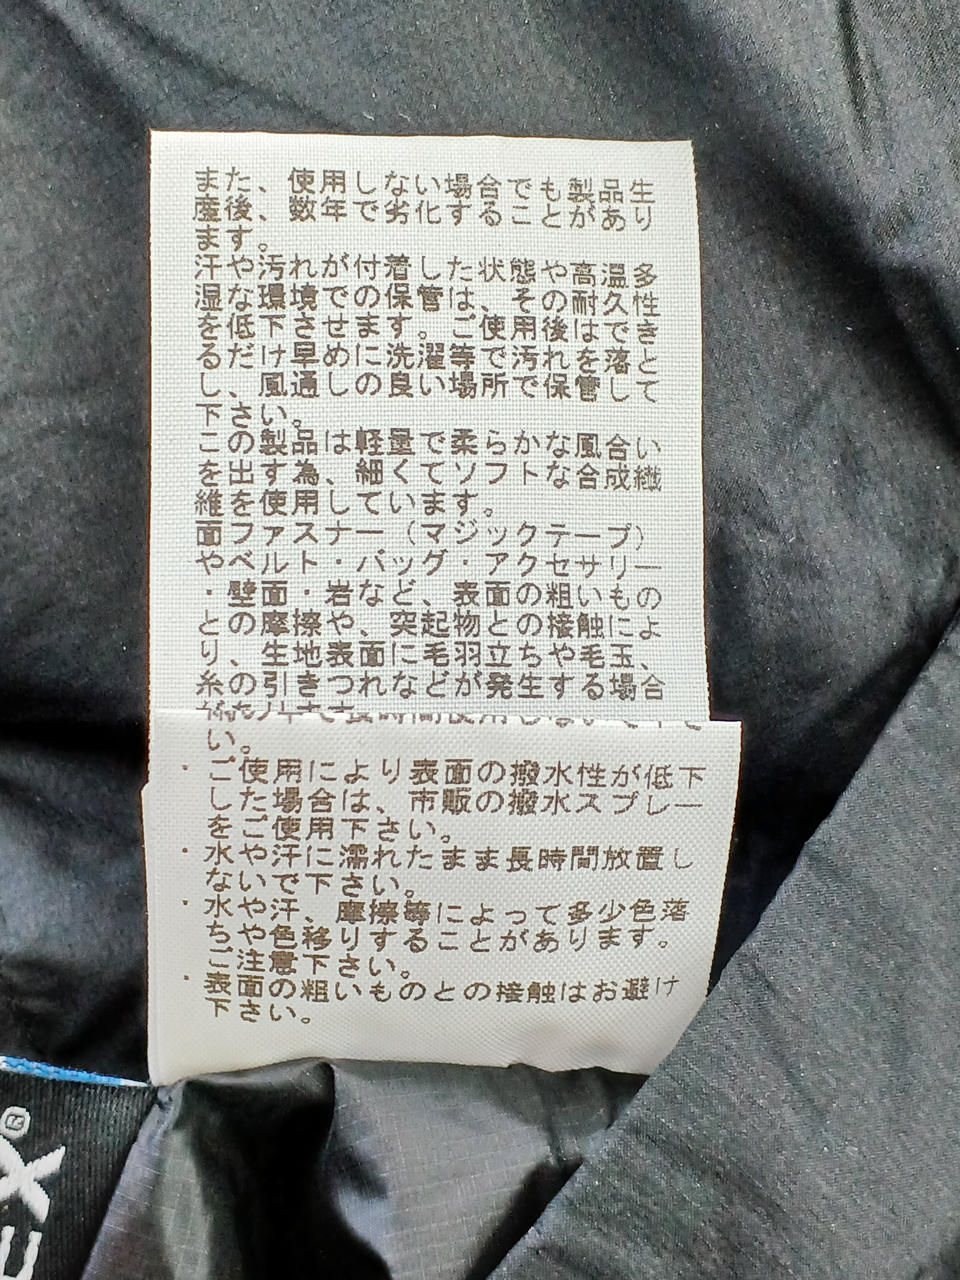 また、使用しない場合でも製品生
産後、数年で劣化することがあり
ます。
汗や汚れが付着した状態や高温多
湿な環境での保管は、その耐久性
を低下させます。ご使用後はでき
るだけ早めに洗濯等で汚れを落と
し、風通しの良い場所で保管して
下さい。
この製品は軽量で柔らかな風合い
を出す為、細くてソフトな合成繊
維を使用しています。
面ファスナー（マジックテープ）
やベルト・バッグ・アクセサリー
・壁面・岩など、表面の粗いもの
との摩擦や、突起物との接触によ
り、生地表面に毛羽立ちや毛玉、
糸の引きつれなどが発生する場合
い。
・ご使用により表面の撥水性が低下
した場合は、市販の撥水スプレー
をご使用下さい。
・水や汗に濡れたまま長時間放置し
ないで下さい。
・水や汗、摩擦等によって多少色落
ちや色移りすることがあります。
ご注意下さい。
・表面の粗いものとの接触はお避け
下さい。
EX®